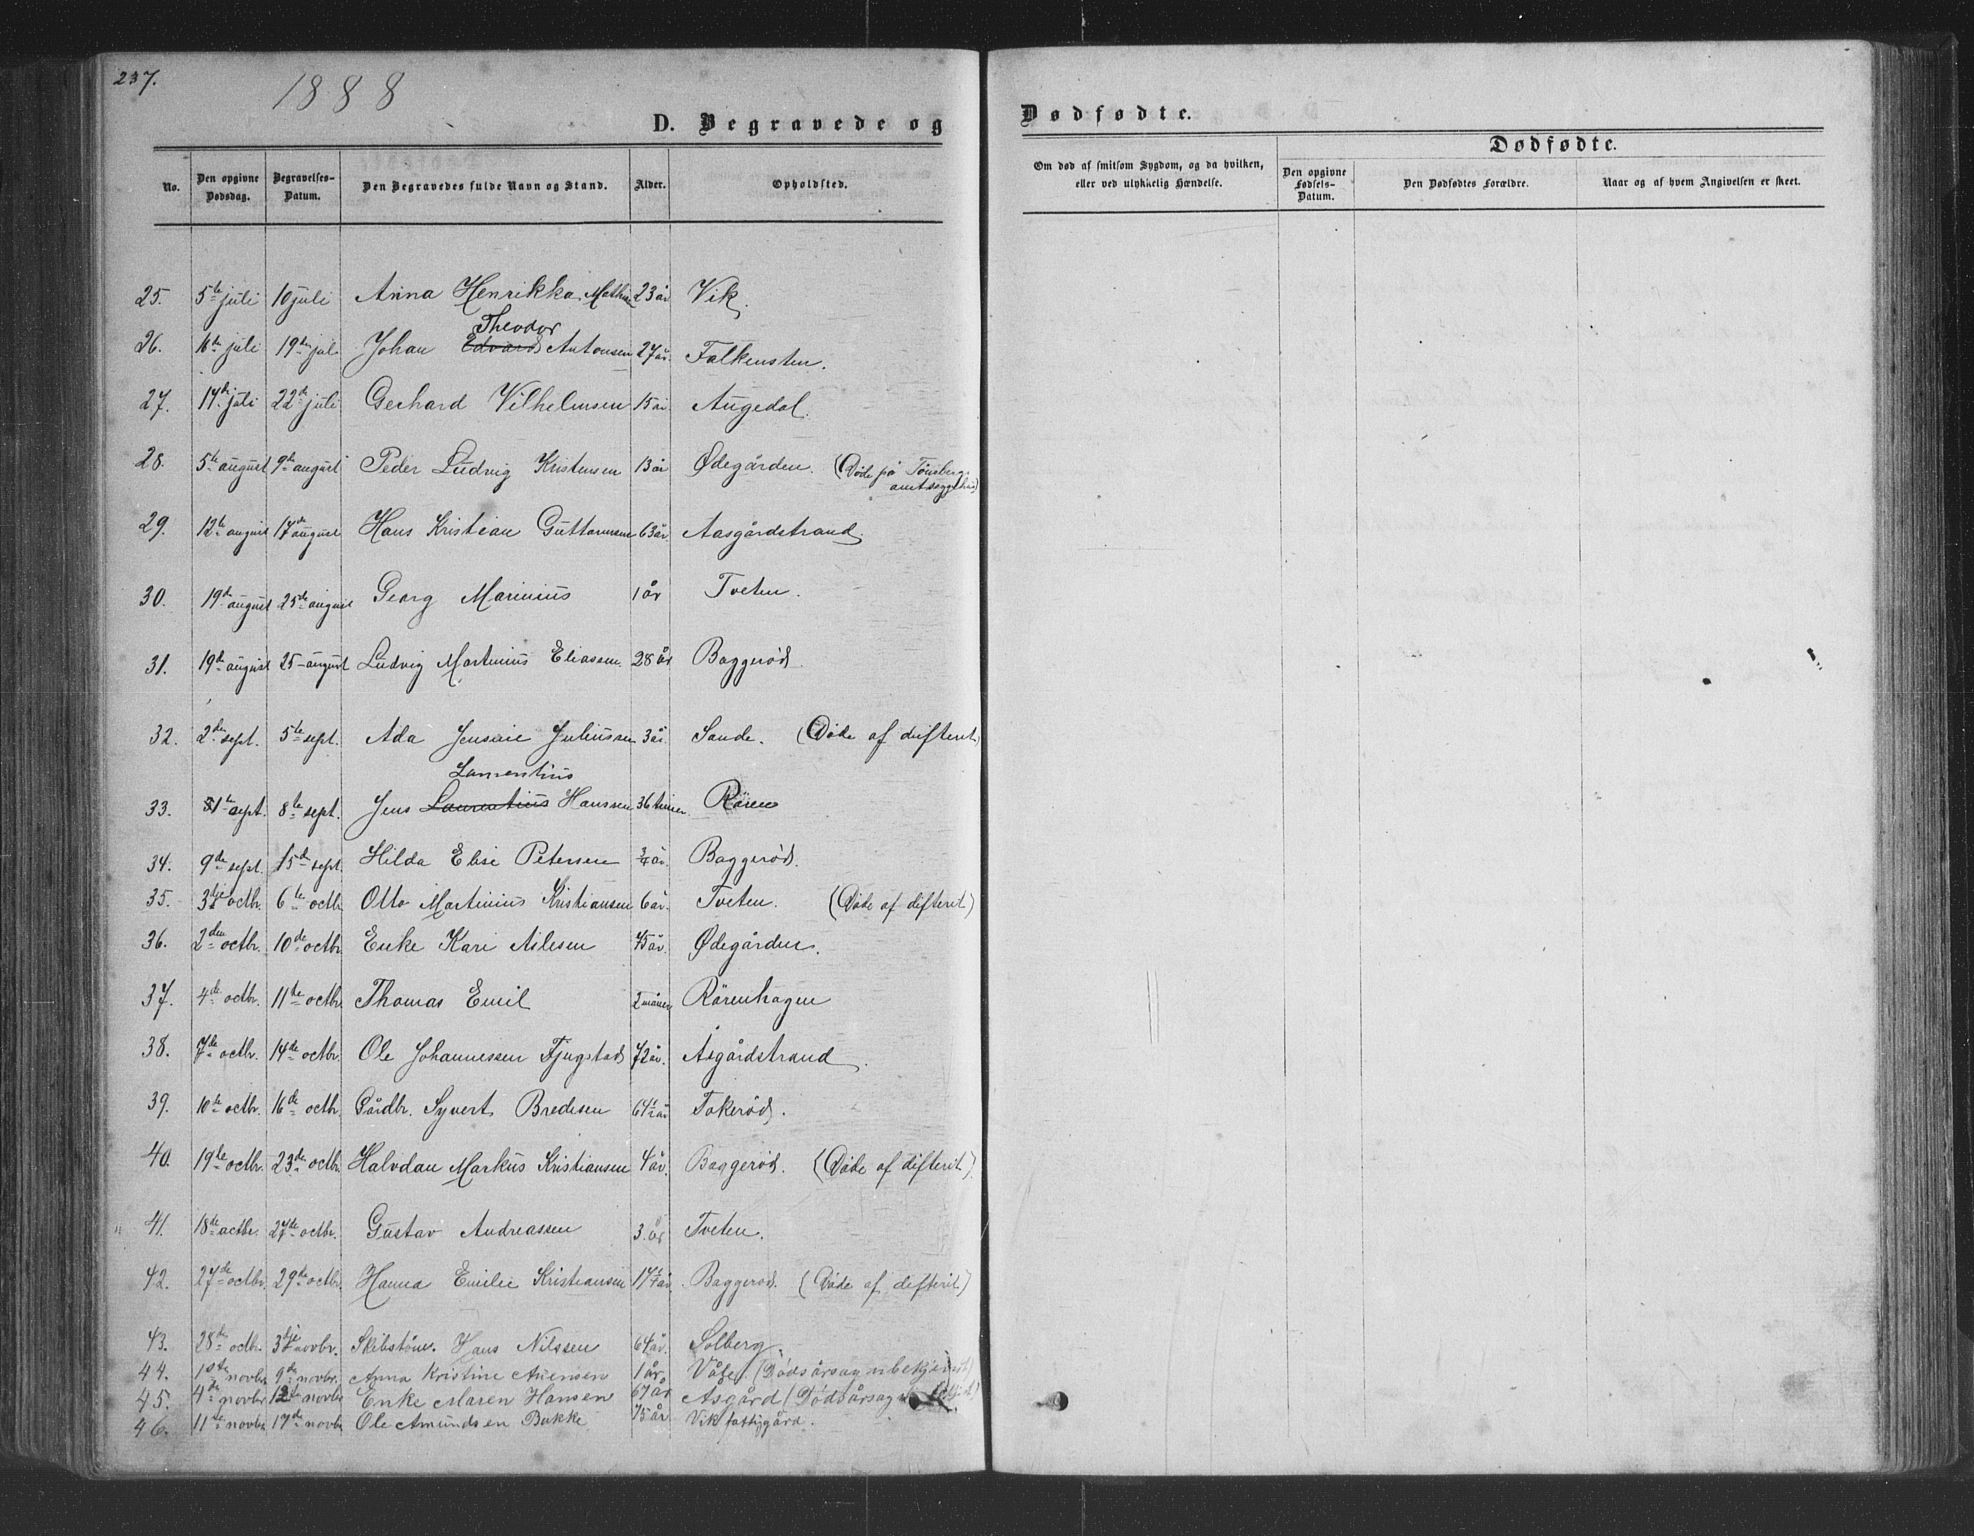 237.
1888
D. Begravede og Dødfødte.
No. | Den opgivne Dødsdag. | Begravelses-Datum. | Den Begravedes fulde Navn og Stand. | Alder. | Opholdsted. | Om død af smitsom Sygdom, og da hvilken, eller ved ulykkelig Hændelse. | Dødfødte. | Den opgivne Fødsels-Datum. | Den Dødfødtes Forældre. | Naar og af hvem Angivelsen er skeet.
25. 5te juli 10 juli Anna Henrikka 23 år Vik.
Theodor
26. 16de juli 19de juli Johan Edvard Antonsen 27 år. Falkensten.
27. 14de juli 22de juli Gerhard Vilhelmsen 15 år. Augedal.
28. 5te august 9de august Peder Ludvig Kristensen 13 år Ødegården. (Døde på Tønsberg
29. 12te august 17de august Hans Kristian Guttormsen 63 år. Aasgårdstrand.
30. 19de august 25de august Georg Marinius 1 år Tveten.
31. 19de august 25 august Ludvig Martinius Eliassen. 28 år Baggerød.
32. 2den sept. 5te sept. Ada Jensine Juliussen 3 år. Sande. (Døde af difterit)
Lamentius
33. sept. 8te sept. Jens Laurentius Hanssen 36 timer. Røren
34. 9de sept. 15de sept. Hilda Elise Petersen 3/4 år. Baggerød.
35. 3dje octbr. 6te octbr. Otto Martinius Kristiansen 6 år. Tveten. (Døde af difterit)
36. 2den octbr. 10de octbr. Enke Kari Aslesen år. Ødegården.
37. 4de octbr. 11te octbr. Thomas Emil 2 måneder Rørenhagen
38. 7de octbr. 14de octbr. Ole Johannessen Fjugstad 72 år. Åsgårdstrand.
39. 10de octbr. 16de octbr. Gårdbr. Syvert Bredesen 64½ år Tokerød.
40. 19te octbr. 23de octbr. Halvdan Markus Kristiansen 4 år. Baggerød. (Døde af difterit).
41. 18de octbr. 27de octbr. Gustav Andreassen 3 år Tveten.
42. 27de octbr. 29de octbr. Hanna Emilie Kristiansen år Baggerød. (Døde af difterit)
43. 28de octbr. 3dje novbr. Skibstøm. Hans Nilssen 64 år. Solberg.
44. 1ste novbr. 9de novbr. Anna Kristine 1 år. Våle. (Dødsårsag ubekjendt)
45. 4de novbr. 12te novbr. Enke Maren Hansen 67 år Åsgård (Dødsårsag
46. 11te novbr. 17de novbr. Ole Amundsen Bakke 75 år Vik fattiggård.